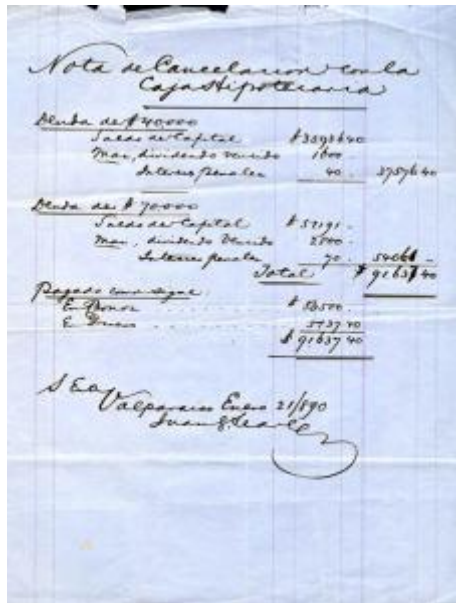 Nota de Cancelacion con la
Caja Hipotecaria
Deuda de $40.000
Saldo de Capital $ 40
Mas, dividendo vencido 1600.
Interes penales 40. 37576 40
Deuda de $ 70.000
Saldo de Capital $ 52191.
Mas, dividendo vencido
Interes penales 70.
Total $ 91637 40
Pagado como sigue:
En Bonos
En Dinero 40
$ 91637 40
S E u O
Valparaiso Enero 21/890
Juan